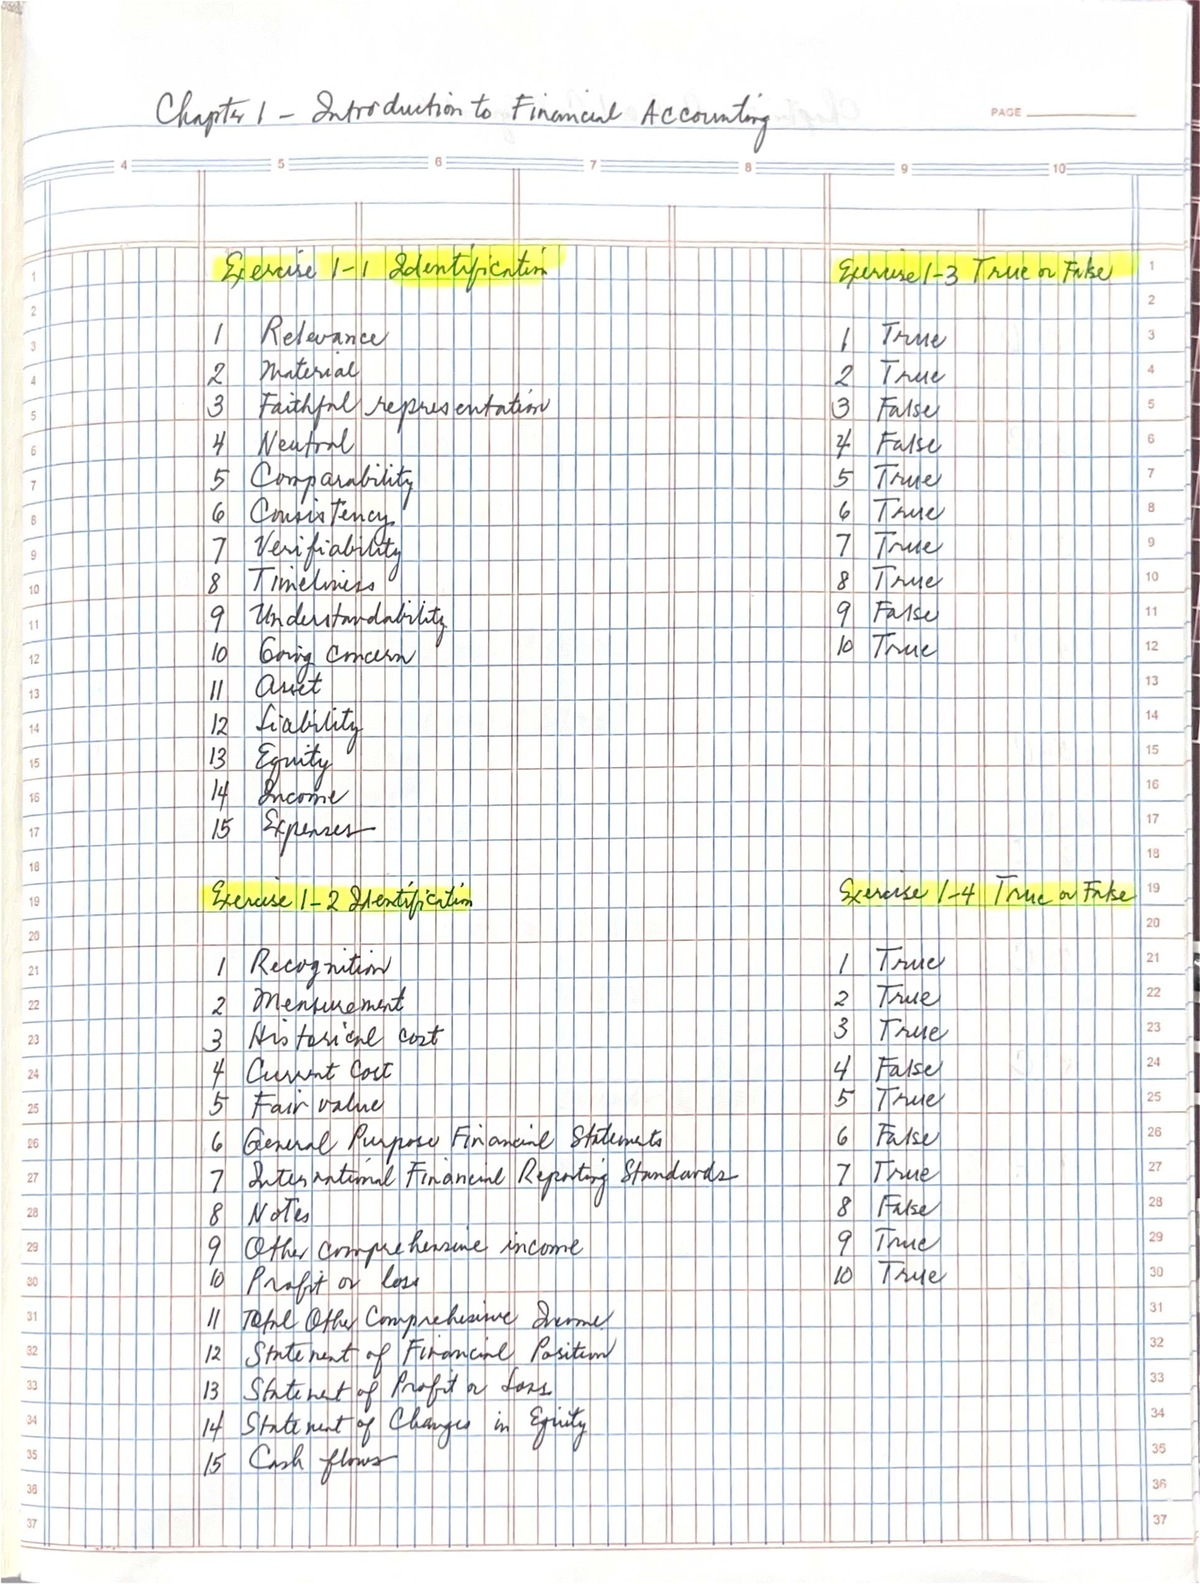 Chapter 1 - Introduction to Financial Accounting
PAGE
4 5 6 7 8 9 10
Exercise 1-1 Identification
1 Relevance
2 Material
3 Faithful representation
4 Neutral
5 Comparability
6 Consistency
7 Verifiability
8 Timeliness
9 Understandability
10 Going concern
11 Asset
12 Liability
13 Equity
14 Income
15 Expenses
Exercise 1-2 Identification
1 Recognition
2 Measurement
3 Historical cost
4 Current Cost
5 Fair value
6 General Purpose Financial Statements
7 International Financial Reporting Standards
8 Notes
9 Other comprehensive income
10 Profit or loss
11 Total Other Comprehesive Income
12 Statement of Financial Position
13 Statement of Profit or Loss
14 Statement of Changes in Equity
15 Cash flows
Exercise 1-3 True or False
1 True
2 True
3 False
4 False
5 True
6 True
7 True
8 True
9 False
10 True
Exercise 1-4 True or False
1 True
2 True
3 True
4 False
5 True
6 False
7 True
8 False
9 True
10 True